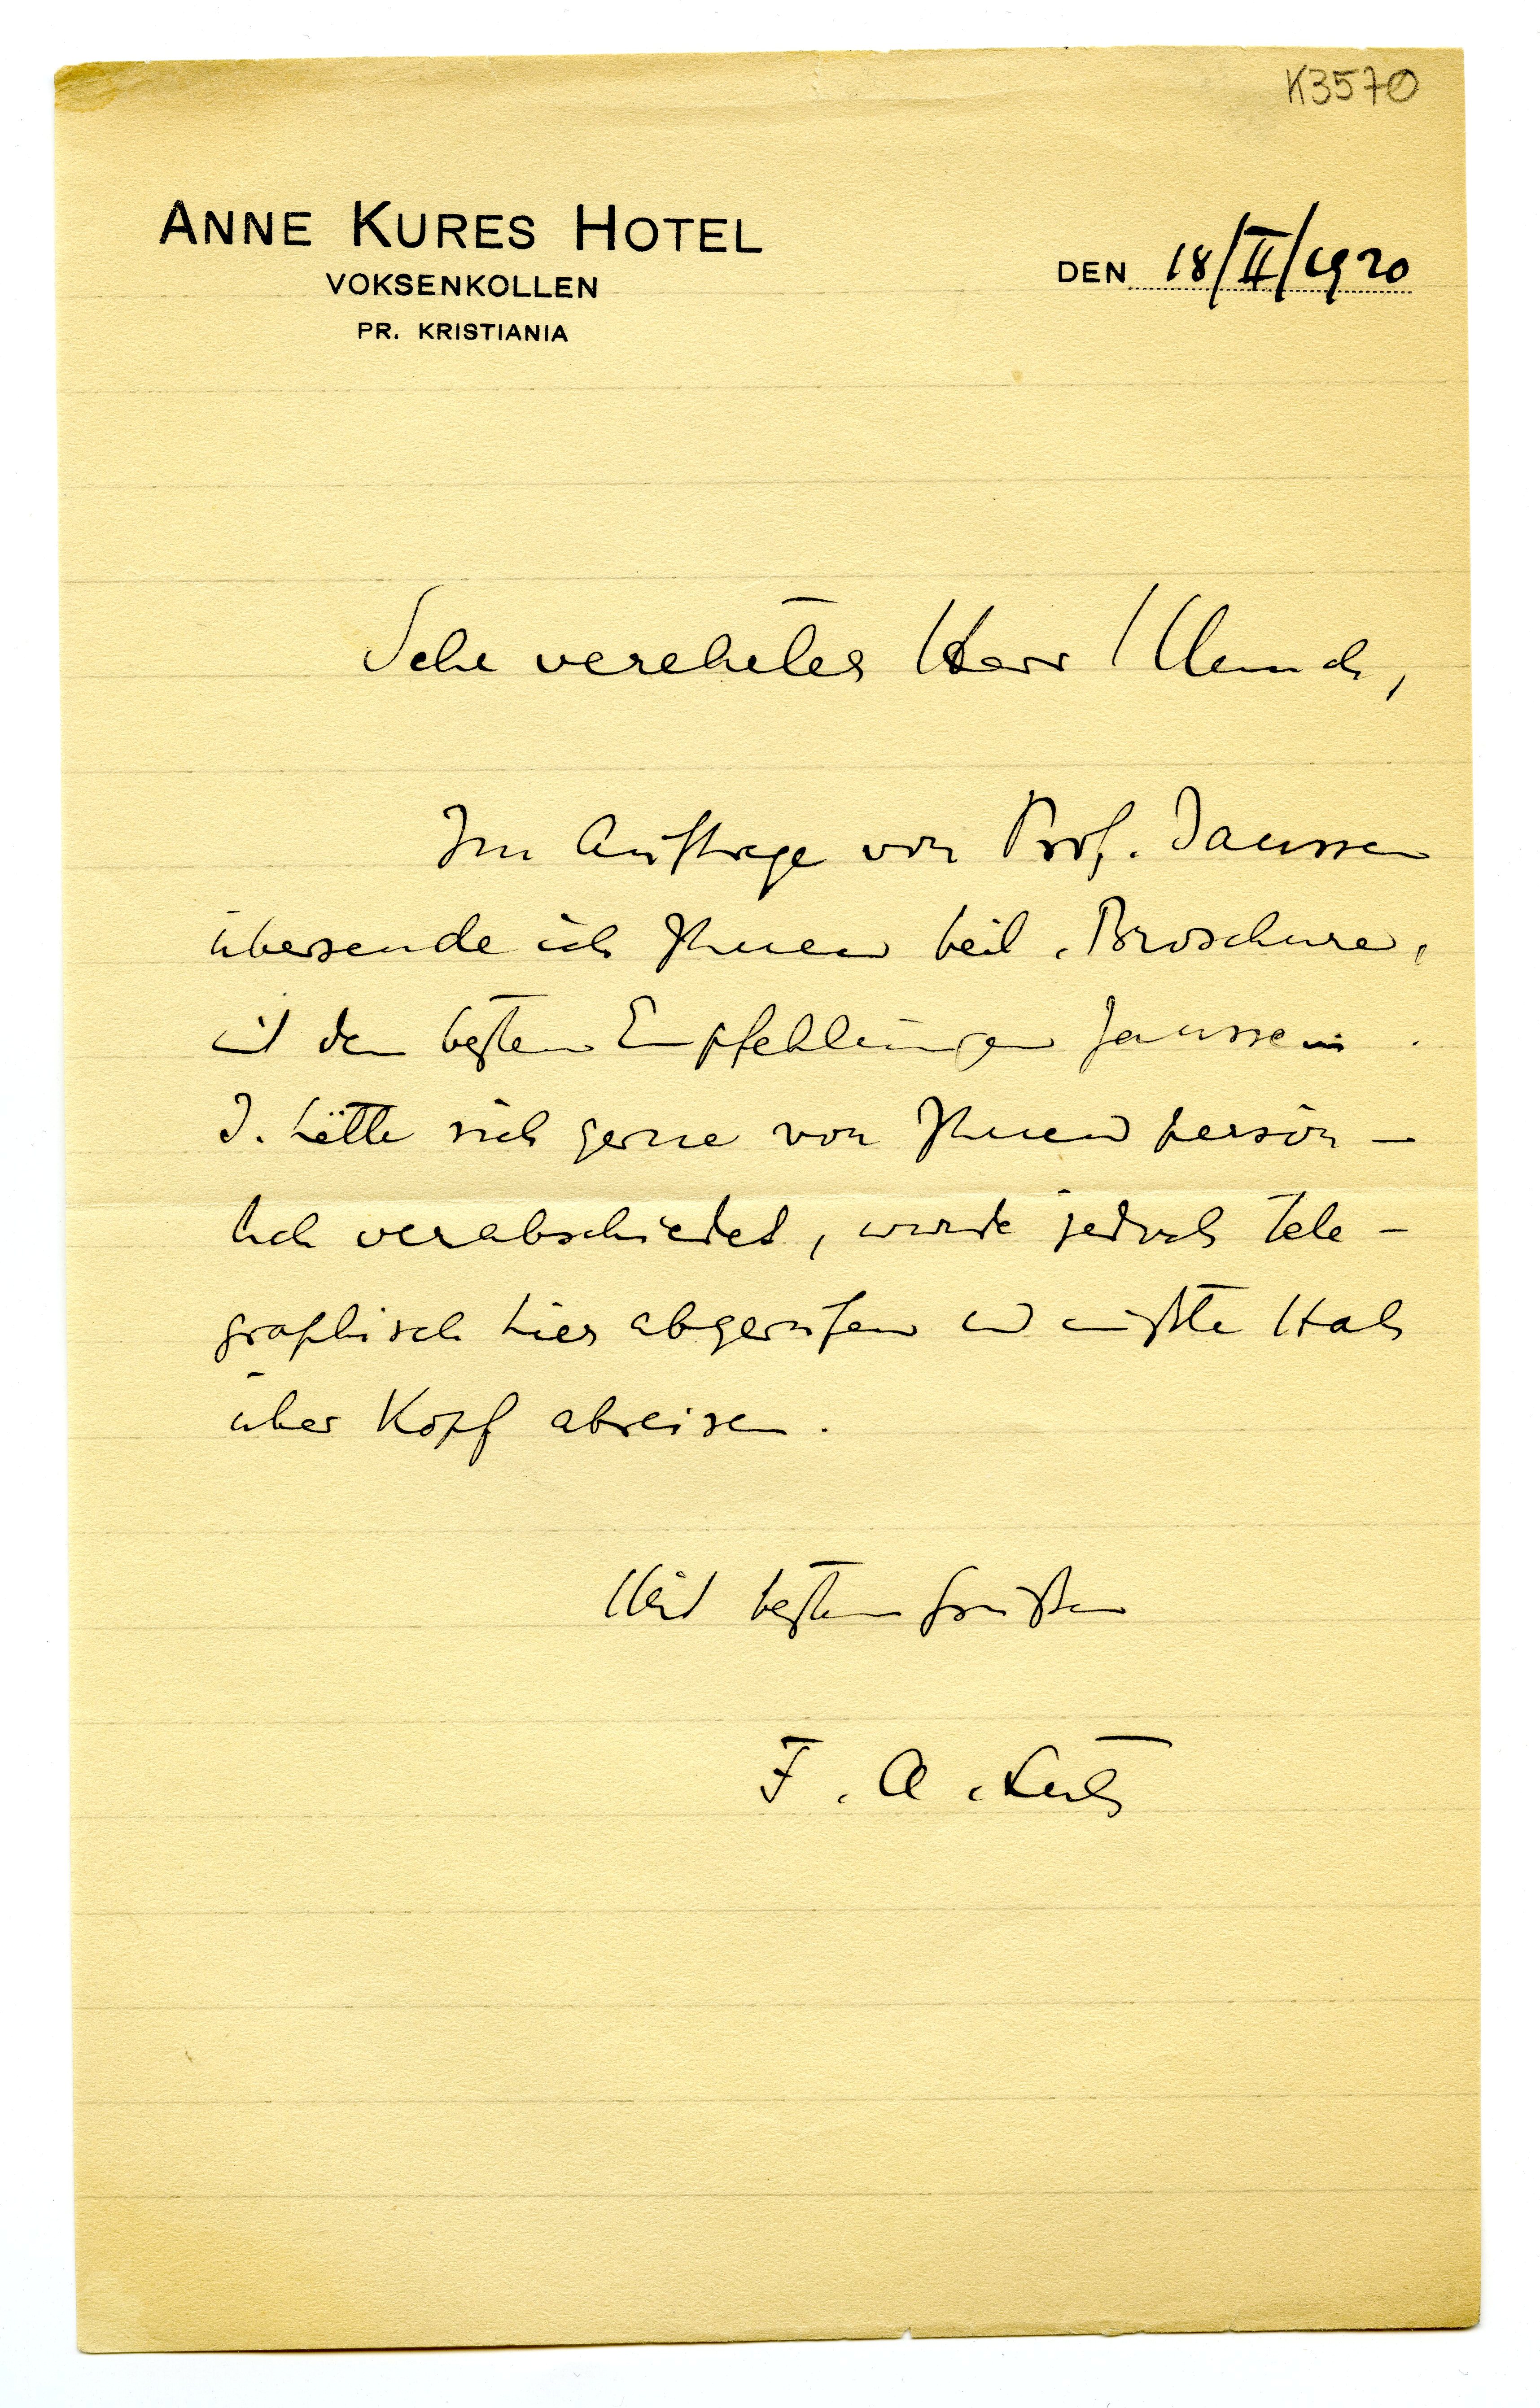 K3570
ANNE KURES HOTEL
VOKSENKOLLEN
PR. KRISTIANIA
DEN 18/II/1920
Sehr verehrter Herr Munch,
Im Auftrage von Prof. Janssen
übersende ich Ihnen beil. Broschure,
mit den besten Empfehlungen Janssens.
J. hätte sich gerne von Ihnen persön-
lich verabschiedet, wurde jedoch tele-
graphisch hier abgerufen und mußte Hals
über Kopf abreisen.
Mit besten Grüßen
F. A.